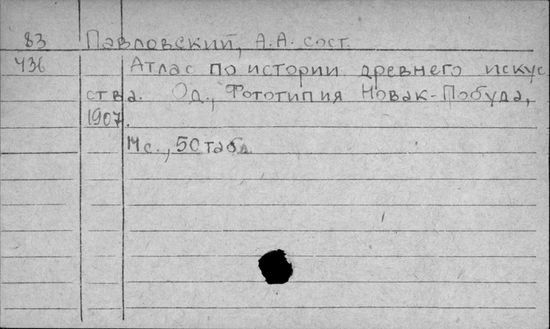 83 Павловский, А.А. сост.
436 Атлас по истории древнего искус
ства. Од., Фототипия Новак-Побуда,
1907.
с., 50 табл.